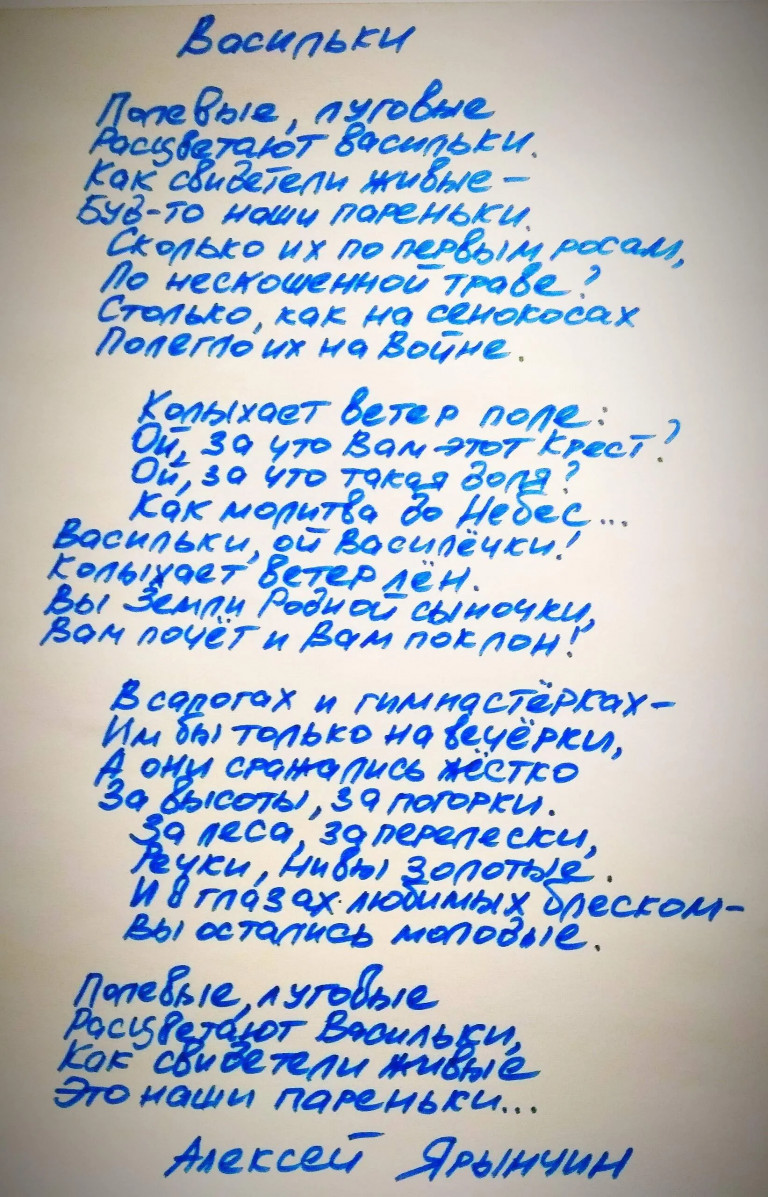 Васильки
Полевые, луговые
Расцветают васильки.
Как свидетели живые –
Буд-то наши пареньки.
Сколько их по первым росам,
По нескошенной траве?
Столько, как на сенокосах
Полегло их на Войне.
Колыхает ветер поле:
Ой, за что Вам этот Крест?
Ой, за что такая доля?
Как молитва до Небес...
Васильки, ой Василёчки!
Колыхает ветер лён.
Вы Земли Родной сыночки,
Вам почёт и Вам поклон!
В сапогах и гимнастёрках –
Им бы только на вечёрки,
А они сражались жёстко
За высоты, за погорки.
За леса, за перелески,
Речки, Нивы золотые.
И в глазах любимых блеском –
Вы остались молодые.
Полевые, луговые
Расцветают Васильки,
Как свидетели живые
Это наши пареньки...
Алексей Ярынчин